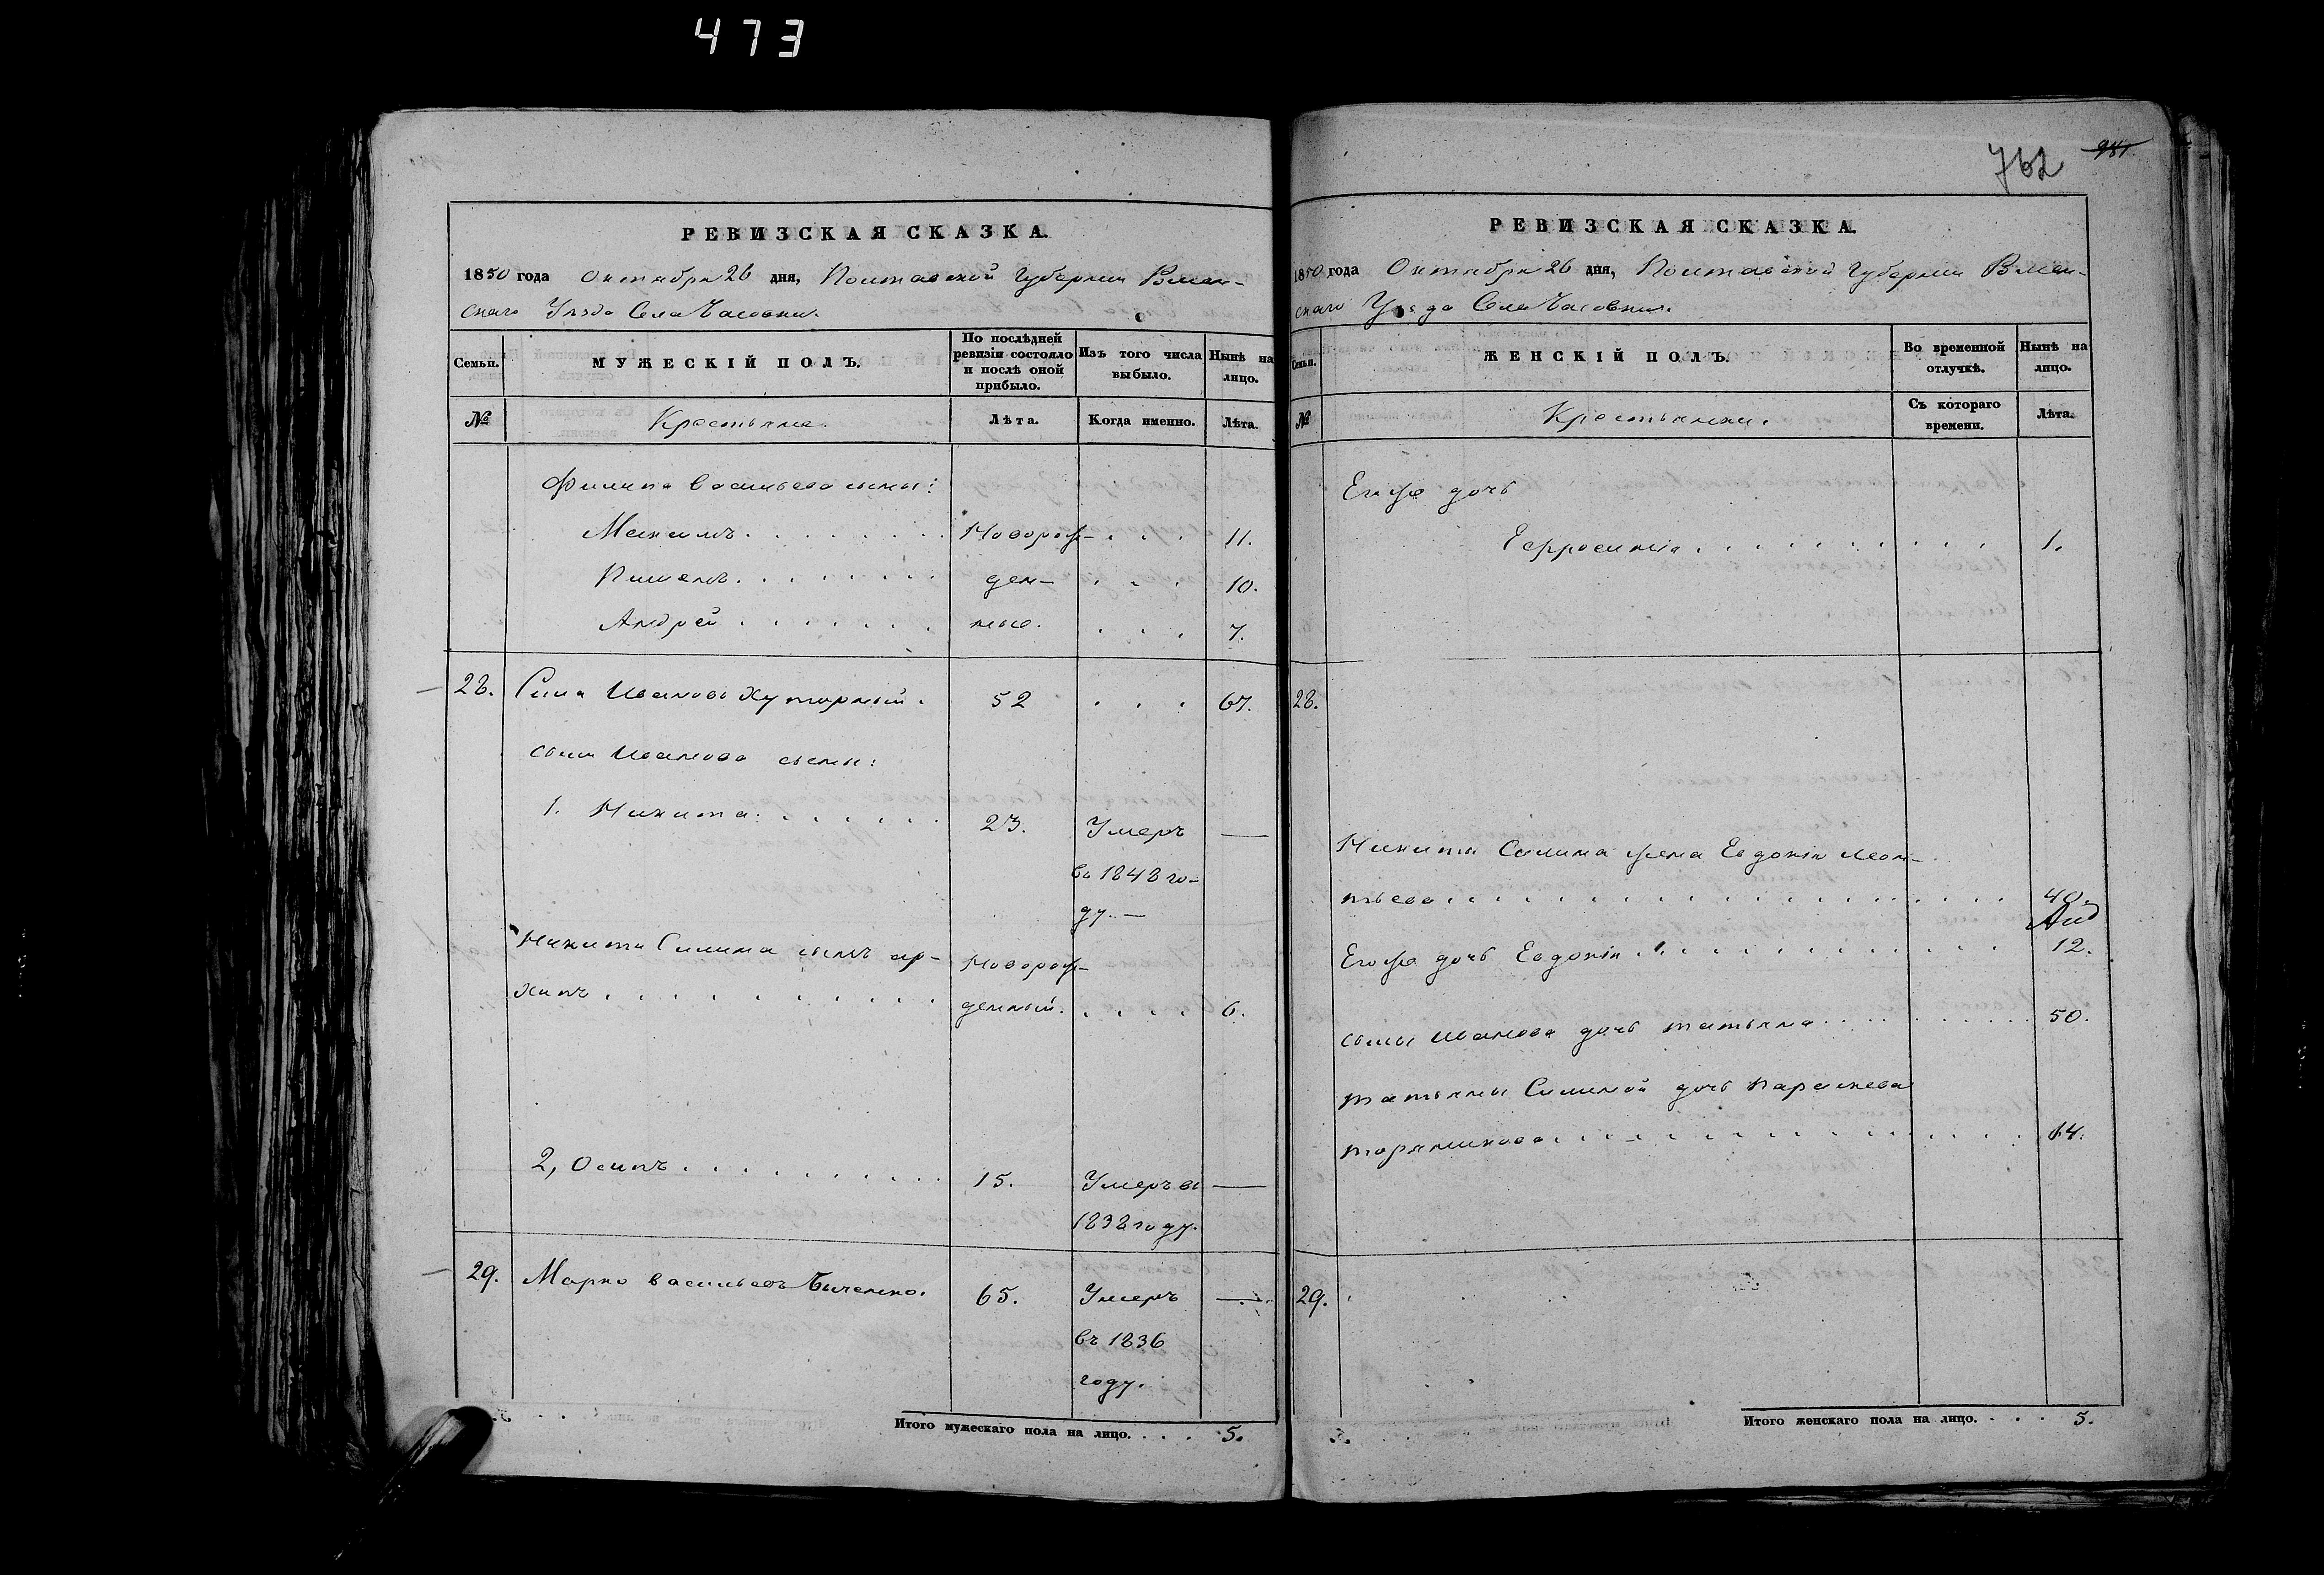 473
РЕВИЗСКАЯ СКАЗКА.
1850 года Октября 26 дня, Полтавской Губернии Ромен-
скаго Уезда Села Часовни.
Семьи. МУЖЕСКІЙ ПОЛЪ. По послѣдней ревизіи состояло и послѣ оной прибыло. Изъ того числа выбыло. Нынѣ на лицо.
№ Крестьяне. Лѣта. Когда именно. Лѣта.
Филипа Васильева сыны:
Максимъ . . . Новорож- . . . 11.
Пименъ . . . ден- . . . 10.
Андрей . . . ные. . . . 7.
28. Сила Ивановъ Хуторный. 52 . . . 67.
Силы Иванова сыны:
1. Никита . . . 23. Умеръ —
въ 1848 го-
ду. —
Никиты Силина сынъ Ар- Новорож-
хипъ . . . денный. . . . 6.
2, Осипъ . . . 15. Умеръ въ —
1838 году.
29. Марко Васильевъ 65. Умеръ —
въ 1836
году.
Итого мужескаго пола на лицо. . . . 5.
762 981
РЕВИЗСКАЯ СКАЗКА.
1850 года Октября 26 дня, Полтавской Губернии Ромен-
скаго Уезда Села Часовни.
Семьи. ЖЕНСКІЙ ПОЛЪ. Во временной отлучкѣ. Нынѣ на лицо.
№ Крестьянки. Съ котораго времени. Лѣта.
Егожъ дочь
Ефросинія . . . 1.
28.
Никиты Силина жена Евдокія Леон-
тьева . . . 40.
Егожъ дочь Евдокія . . . 12.
Силы Иванова дочь Татьяна . . . 50.
Татьяны Силиной дочь Параскева
. . . 14.
29.
Итого женскаго пола на лицо. . . . 5.